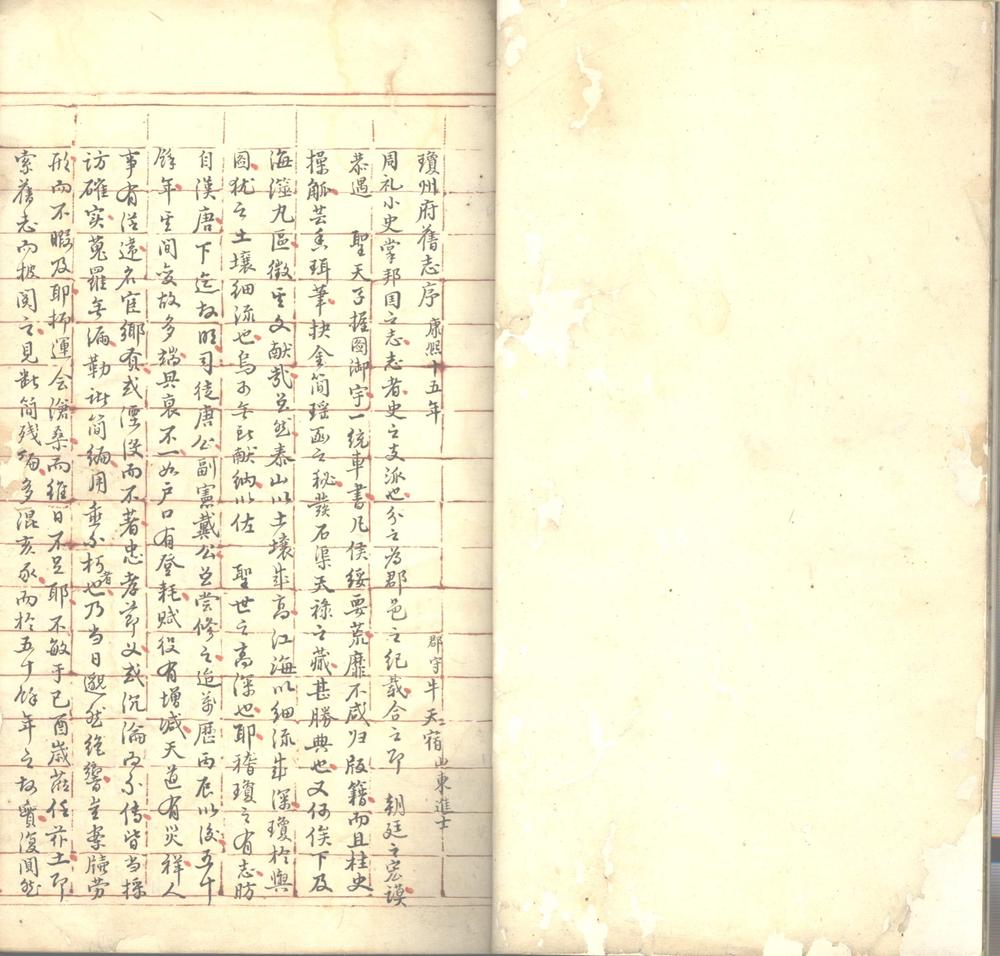 瓊州府舊志序 康熙十五年 郡守牛天宿山東進士
周礼小史掌邦国之志志者史之支派也分之为郡邑之纪载合之即 朝廷之宏谟
恭遇 聖天子握圖御宇一統車書凡侯綏要荒靡不咸归版籍而且柱史
操觚芸香珥筆抉金简瑶函之秘發石渠天禄之藏甚勝典也又何俟下及
海澨九區徵其文献哉然泰山以土壤成高江海以细流成深瓊於輿
圖犹之土壤细流也乌可無献纳以佐 聖世之高深也耶稽瓊之有志昉
自漢唐下迄故明司徒唐公副憲戴公尝修之迨萬歷丙辰以後五十
馀年其间变故多端兴衰不一如户口有登耗赋役有增减天道有災祥人
事有淫遠名宦鄉贤或湮没而不著忠孝節义或沉淪而不傳皆当採
访確实蒐羅無漏勒诸简编用垂不朽者也乃当日邈然绝響岂案牘劳
形而不暇及耶抑運会滄桑而维日不足耶不敏于己酉歲蒞任兹土即
索舊志而披閱之見断简残编多混亥豕而於五十馀年之故實復閴然